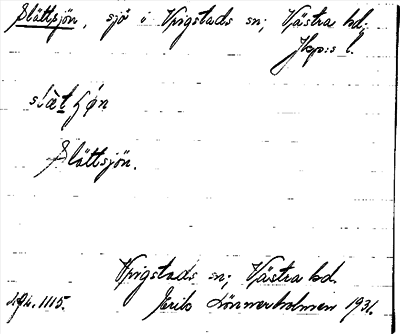 Slättsjön, sjö i Vrigstads sn; Västra hd;
Jkp:s l.
slæt ʃøn
Slättsjön.
Vrigstads sn; Västra hd.
Lönnerholmen 1931.